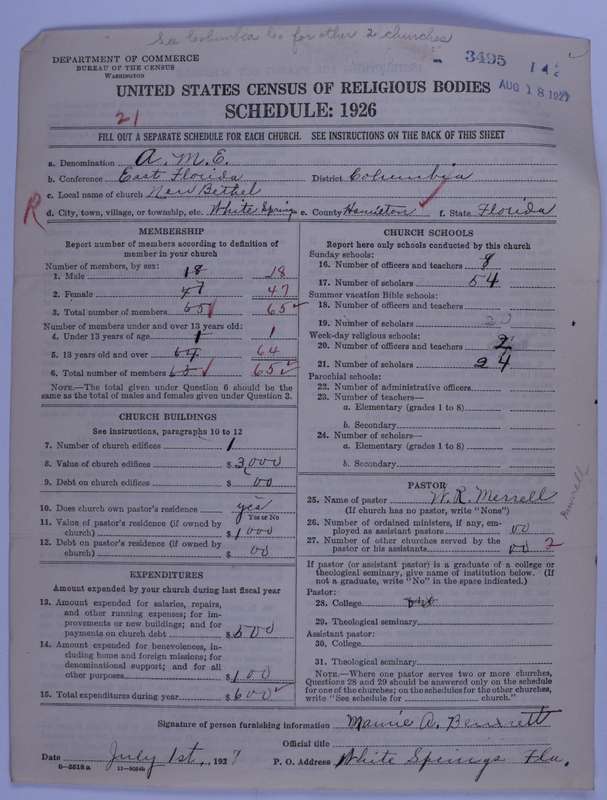 See Columbia Co for other 2 churches
DEPARTMENT OF COMMERCE
BUREAU OF THE CENSUS
WASHINGTON
3495
AUG 18 1927
UNITED STATES CENSUS OF RELIGIOUS BODIES
SCHEDULE: 1926
21
FILL OUT A SEPARATE SCHEDULE FOR EACH CHURCH. SEE INSTRUCTIONS ON THE BACK OF THIS SHEET
a. Denomination A. M. E.
b. Conference East Florida District Columbia
c. Local name of church New Bethel
R d. City, town, village, or township, etc. White Springs e. County Hamilton f. State Florida
MEMBERSHIP
Report number of members according to definition of
member in your church
Number of members, by sex:
1. Male 18 18
2. Female 47 47
3. Total number of members 65 65
Number of members under and over 13 years old:
4. Under 13 years of age 1 1
5. 13 years old and over 64 64
6. Total number of members 65 65
NOTE.—The total given under Question 6 should be the
same as the total of males and females given under Question 3.
CHURCH BUILDINGS
See instructions, paragraphs 10 to 12
7. Number of church edifices 1
8. Value of church edifices $3,000
9. Debt on church edifices $ 00
10. Does church own pastor's residence yes
Yes or No
11. Value of pastor's residence (if owned by
church) $1000
12. Debt on pastor's residence (if owned by
church) $ 00
EXPENDITURES
Amount expended by your church during last fiscal year
13. Amount expended for salaries, repairs,
and other running expenses; for im-
provements or new buildings; and for
payments on church debt $500
14. Amount expended for benevolences, in-
cluding home and foreign missions; for
denominational support; and for all
other purposes $100
15. Total expenditures during year $600
CHURCH SCHOOLS
Report here only schools conducted by this church
Sunday schools:
16. Number of officers and teachers 8
17. Number of scholars 54
Summer vacation Bible schools:
18. Number of officers and teachers
19. Number of scholars
Week-day religious schools:
20. Number of officers and teachers 2
21. Number of scholars 24
Parochial schools:
22. Number of administrative officers
23. Number of teachers—
a. Elementary (grades 1 to 8)
b. Secondary
24. Number of scholars—
a. Elementary (grades 1 to 8)
b. Secondary
PASTOR
25. Name of pastor W. R. Merrell
(If church has no pastor, write "None")
26. Number of ordained ministers, if any, em-
ployed as assistant pastors 00
27. Number of other churches served by the
pastor or his assistants 00 2
If pastor (or assistant pastor) is a graduate of a college or
theological seminary, give name of institution below. (If
not a graduate, write "No" in the space indicated.)
Pastor:
28. College
29. Theological seminary
Assistant pastor:
30. College
31. Theological seminary
NOTE.—Where one pastor serves two or more churches,
Questions 28 and 29 should be answered only on the schedule
for one of the churches; on the schedules for the other churches,
write "See schedule for church."
Signature of person furnishing information Mamie A. Bennett
Official title
Date July 1st, 1927 P. O. Address White Springs Fla.